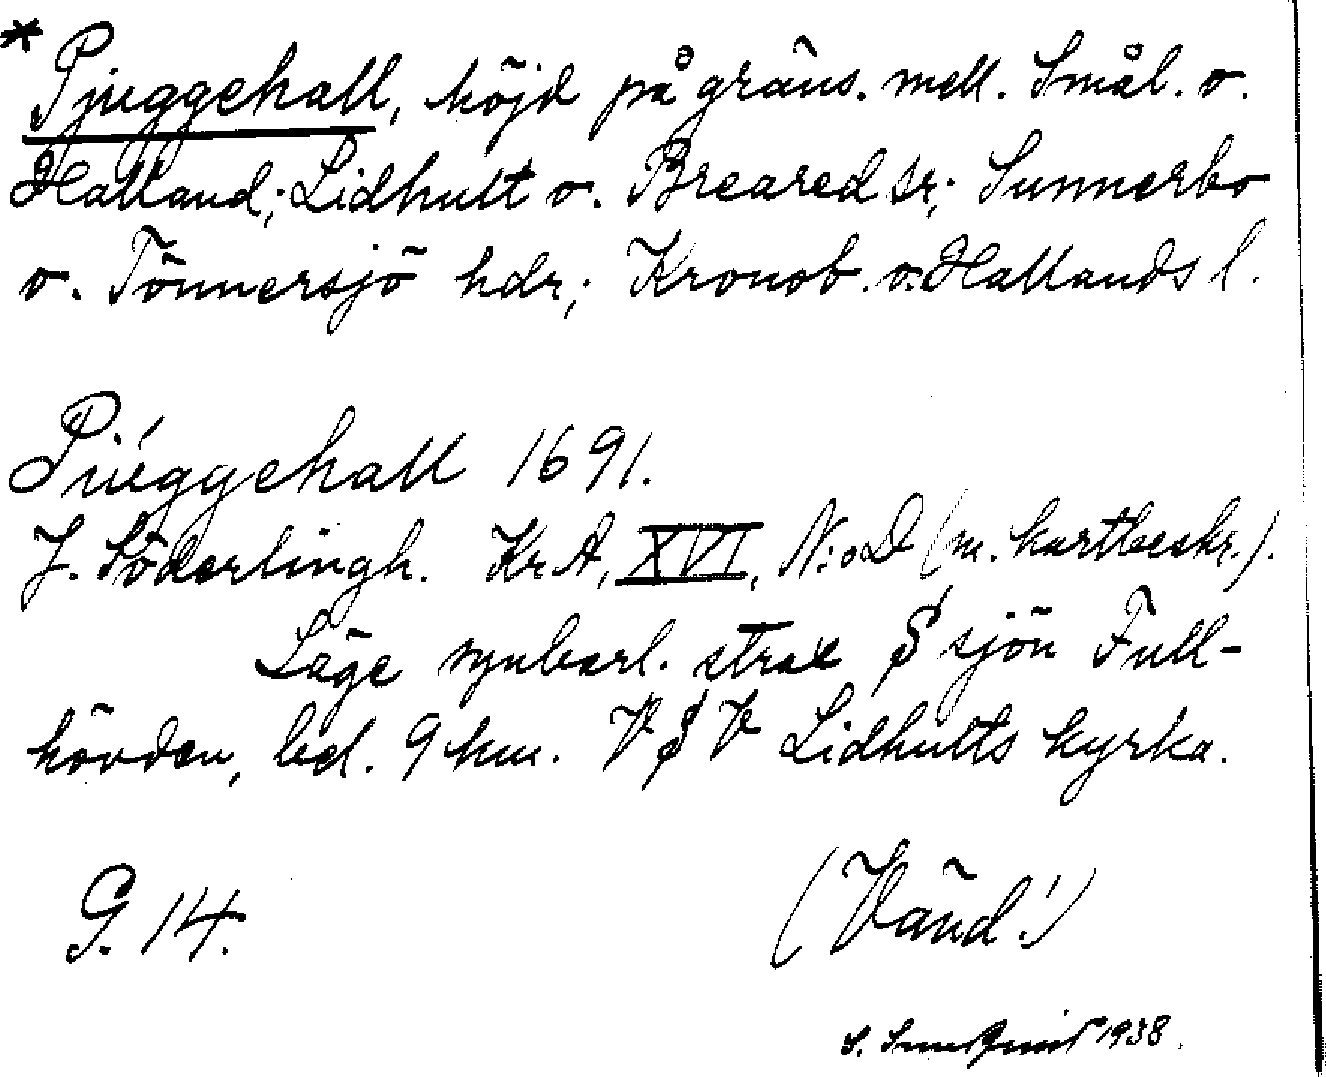 * Pjuggehall, höjd på gräns. mell. Smål. o.
Halland; Lidhult o. Breared sr; Sunnerbo
o. Tönnersjö hdr; Kronob. o. Hallands l.
Piuggehall 1691.
J. Söderlingh. KrA, XVI, N:o D (m. kartbeskr.).
Läge synbarl. strax S sjön Full-
hövden, bel. 9 km. VSV Lidhults kyrka.
G. 14.
(Vänd!)
1938.